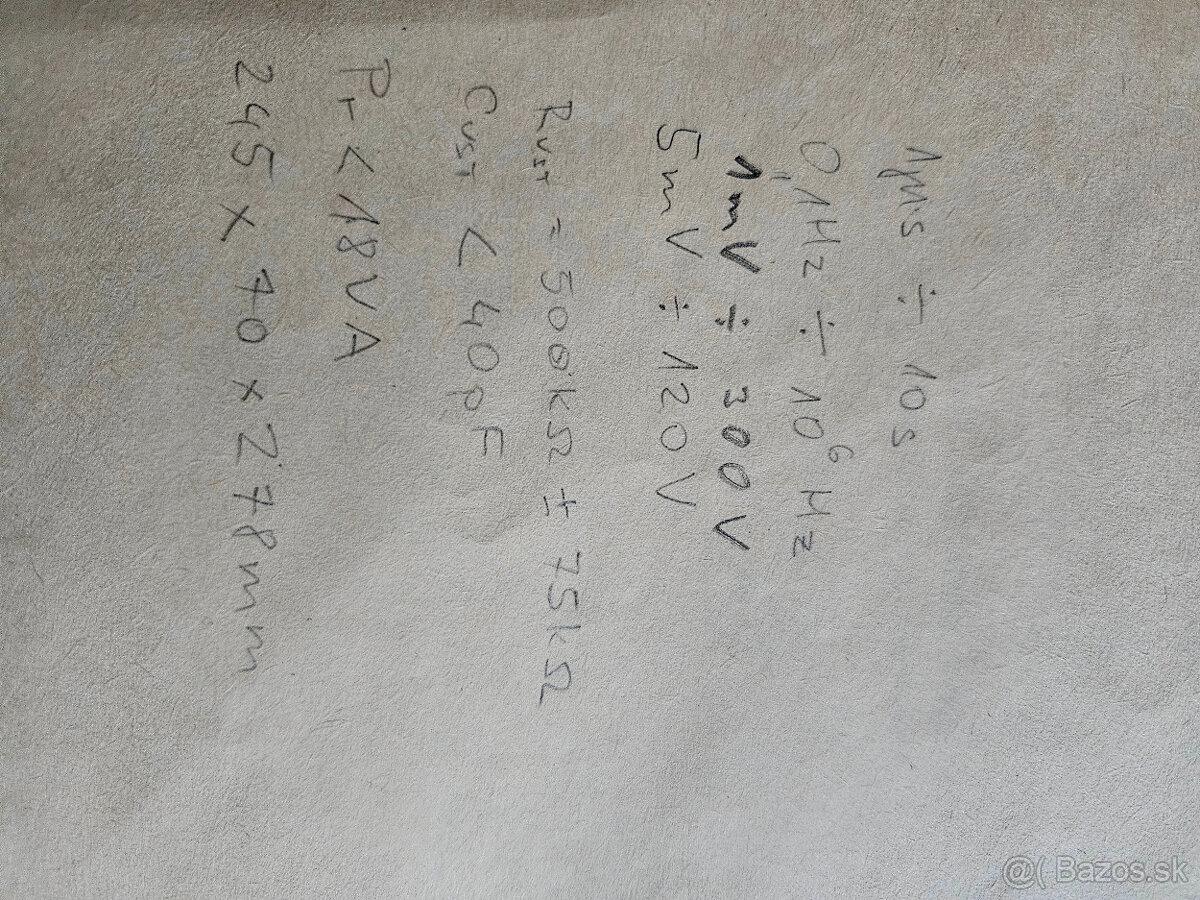 1μs ÷ 10s
0,1Hz ÷ 10⁶ Hz
1mV ÷ 300V
5mV ÷ 120V
Rvst = 500kΩ ± 75kΩ
Cvst < 40pF
Pr < 18VA
245 x 70 x 278mm
@( Bazos.sk